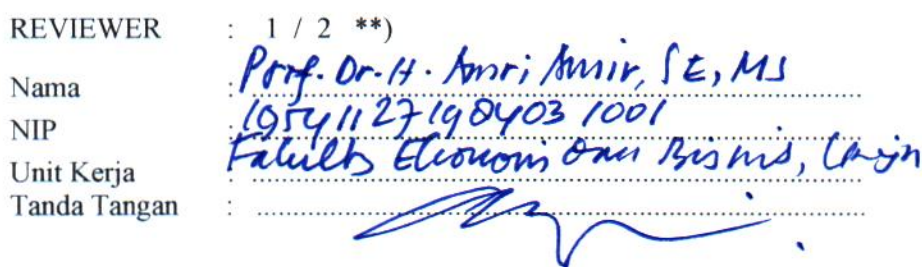 REVIEWER : 1 / 2 **)
Nama : Prof. Dr. H. Amri Amir, SE, MS
NIP : 19541127198403 1001
Unit Kerja : Fakultas Ekonomi dan Bisnis, Unja
Tanda Tangan :